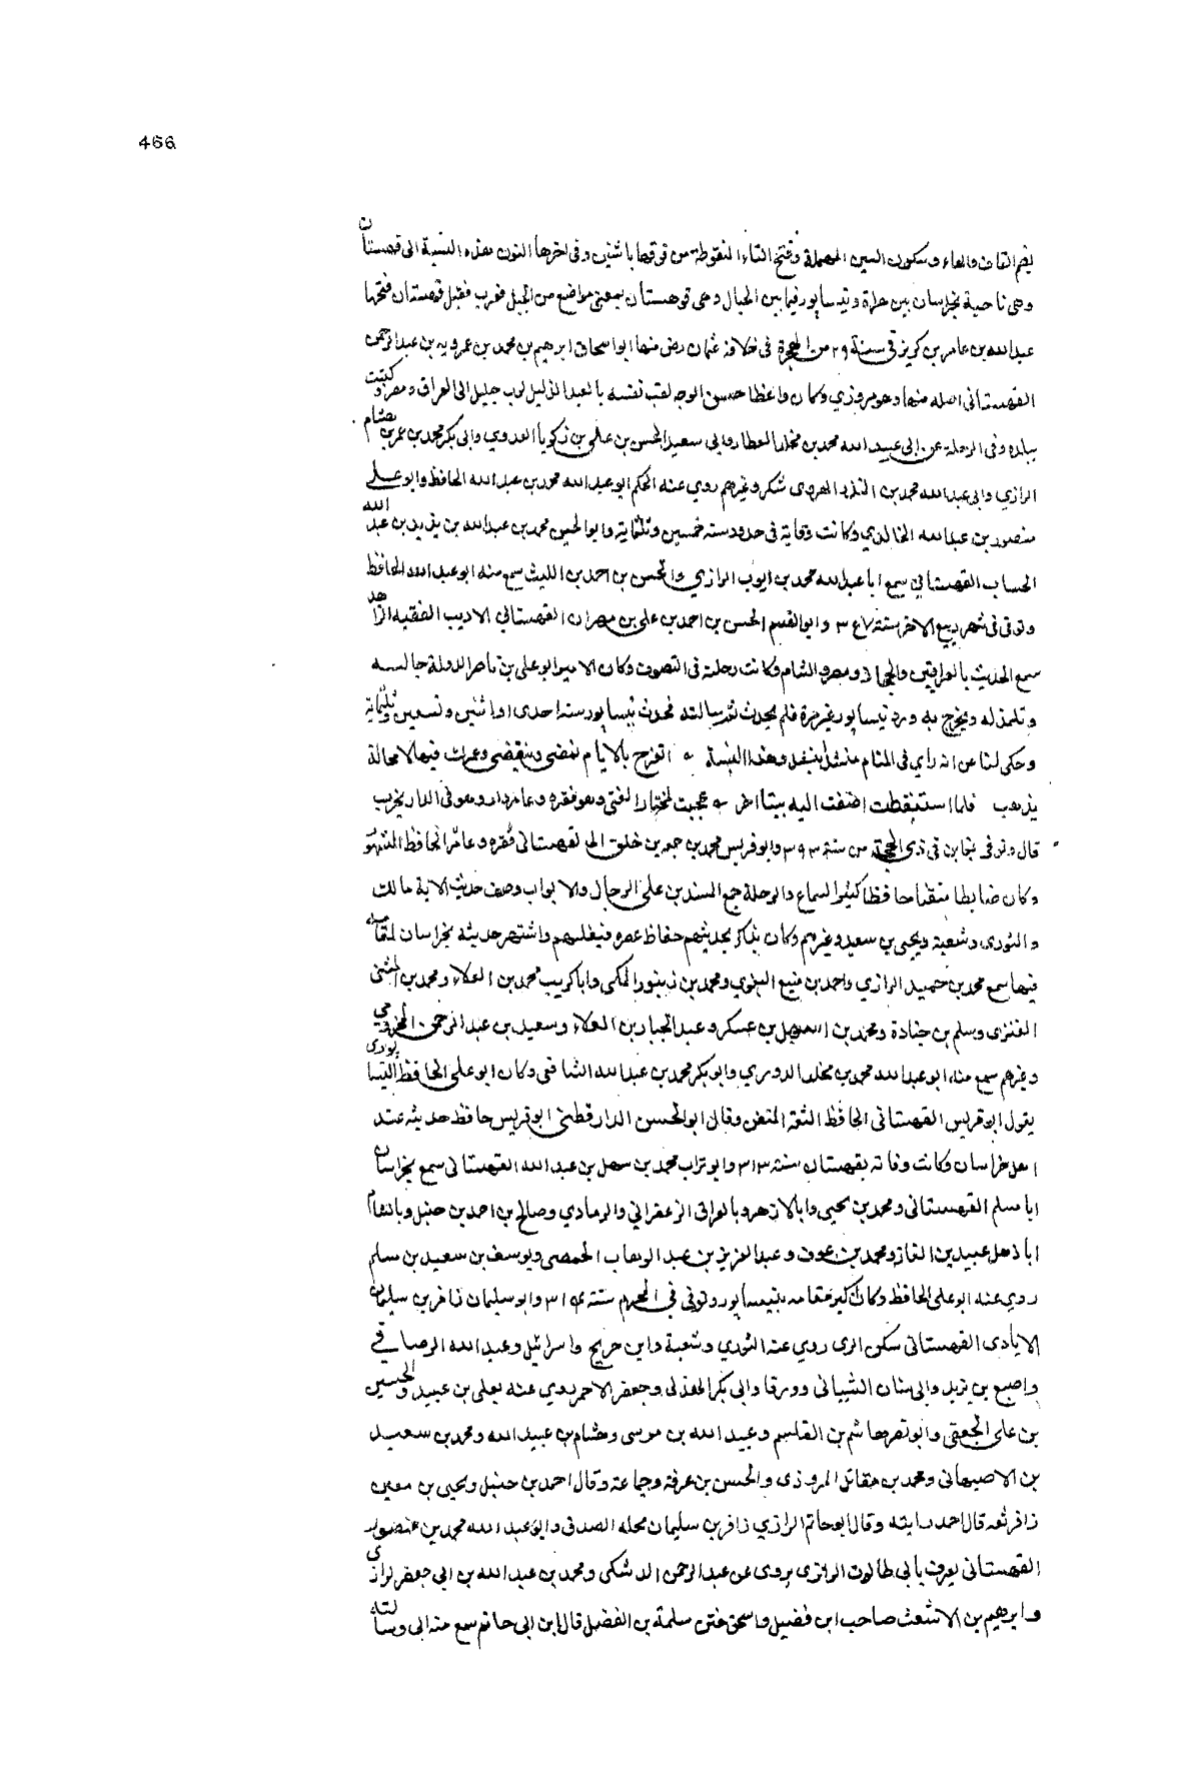 466
بضم القاف والهاء وسكون السين المهملة وفتح التاء المنقوطة من فوقها باثنتين وفى اخرها النون هذه النسبة الى قهستان
وهى ناحية بخراسان بين هراة ونيسابور فيما بين الجبال وهى قوهستان يعنى مواضع من الجبل فعرب فقيل قهستان فتحها
عبد الله بن عامر بن كريز فى سنة ٢٩ من الهجرة فى خلافة عثمان رض منها ابو اسحاق ابرهيم بن محمد بن عمرويه بن عبد الرحمن
القهستانى اصله منها وهو مروزي وكان واعظا حسن الوجه لقب نفسه بالعبد الذليل لرب جليل الى العراق ومصر وكتبت
ببلده وفى الرحلة عن ابى عبيد الله محمد بن مخلد العطار وابى سعيد الحسن بن على بن زكريا العدوي وابى بكر محمد بن عمر بن هشام
الرازي وابى عبد الله محمد بن المنذر الهروى شكر وغيرهم روي عنه الحكم ابو عبد الله محمد بن عبد الله الحافظ وابو على
منصور بن عبد الله الخالدي وكانت وفاته فى حدود سنة خمسين وثلثماية وابو الحسين محمد بن عبد الله بن يزيد بن عبد الله
الحساب القهستانى سمع ابا عبد الله محمد بن ايوب الرازي والحسن بن احمد بن الليث سمع منه ابو عبد الله الحافظ
وتوفى فى شهر ربيع الاخر سنة ٣٤٧ وابو القسم الحسن بن احمد بن على بن مهران القهستاني الاديب الفقيه الزاهد
سمع الحديث بالعراقين والحجاز ومصر والشام وكانت رحلته فى التصوف وكان الامير ابو على بن ناصر الدولة جالسه
وتلمذ له ويخرج به ورد نيسابور غير مرة فلم يحدث ثم سالته فحدث بنيسابور سنة احدى او اثنين وتسعين وثلثماية
وحكى لنا عن انه راي فى المنام منشدا ينشد وهذا البيت ه اتفرح بالايام تمضى وتنقضى وعمرك فيها لا محالة
يذهب فلما استيقظت اضفت اليه بيتا اخر ه عجبت لمختار الغنى وهو فقره وعامر دار وهو فى الدار يخرب
قال وتوفى بنجابن فى ذى الحجة من سنة ٣٩٣ وابو قريس محمد بن جمعه بن خلف القهستانى فقره وعامر الحافظ المشهور
وكان ضابطا متقنا حافظا كثير السماع والرحلة جمع المسندين على الرجال والابواب وصف حديث الاية مالك
والثورى وشعبة ويحيى بن سعيد وغيرهم وكان يذاكر بحديثهم حفاظ عصره فيغلبهم واشتهر حديثه بخراسان لمقامه
فيها سمع محمد بن حميد الرازي واحمد بن منيع البغوي ومحمد بن زنبور المكى وابا كريب محمد بن العلاء ومحمد بن المثنى
العنزى وسلم بن جنادة ومحمد بن سهيل بن عسكر وعبد الجبار بن العلاء وسعيد بن عبد الرحمن المخزومي
وغيرهم سمع منه ابو عبد الله محمد بن مخلد الدوري وابو بكر محمد بن عبد الله الشافى وكان ابو على الحافظ النيسابورى
يقول ابو قريس القهستانى الحافظ الثقة المتقن وقال ابو الحسن الدار قطنى ابو قريس حافظ حديثه عند
اهل خراسان وكانت وفاته بقهستان سنة ٣١٣ وابو تراب محمد بن سهل بن عبد الله القهستانى سمع بخراسان
ابا مسلم القهستانى ومحمد بن يحيى وابا الازهر وبالعراق الزعفرانى والرمادي وصالح بن احمد بن حنبل وبالشام
ابا ذهل عبيد بن الغاز ومحمد بن عوف وعبد العزيز بن عبد الوهاب الحمصى ويوسف بن سعيد بن سلم
روي عنه ابو على الحافظ وكان كبير مقامه بنيسابور وتوفى فى المحرم سنة ٣١٤ وابو سليمان زافر بن سليمان
الايادى القهستانى سكن الرى روي عنه الثوري وشعبة وابن جريج واسرائيل وعبد الله الرصافي
واصبع بن يزيد وابى سنان الشيبانى وورقا وابى بكر الهذلى وجعفر الاحمر روي عنه يعلى بن عبيد والحسين
بن على الجعفى وابو نصر هاشم بن القاسم وعبيد الله بن موسى وهشام بن عبيد الله ومحمد بن سعيد
بن الاصبهانى ومحمد بن مقاتل المروزى والحسن بن عرفة وجماعة وقال احمد بن حنبل ويحيى بن معين
زافر ثقه قال احمد رايته وقال ابو حاتم الرازي زافر بن سليمان محله الصدق وابو عبد الله محمد بن منصور
القهستانى يعرف بابى طالوت الرازى يروى عن عبد الرحمن الدشتكى ومحمد بن عبد الله بن ابى جعفر الرازى
وابرهيم بن الاشعث صاحب ابن فضيل واسحق ختن سلمة بن الفضل قال ابن ابى حاتم سمع منه ابى وسالته